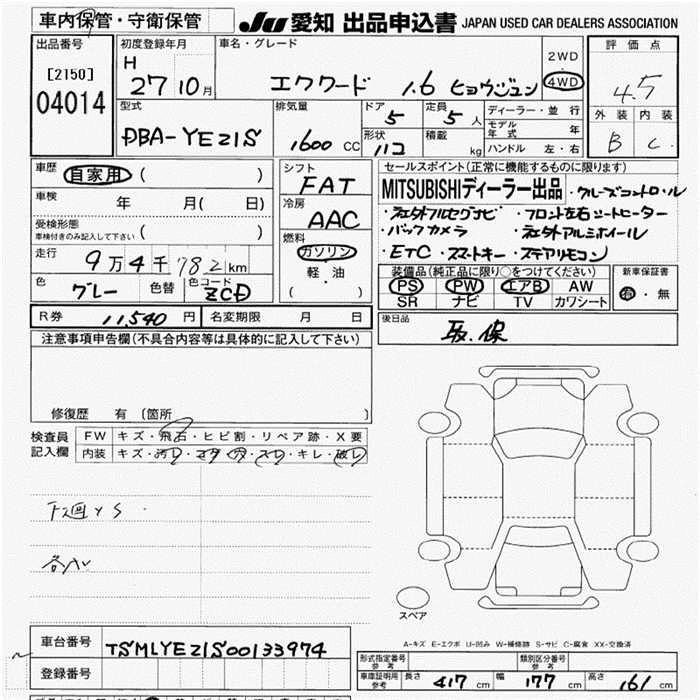 車内保管・守衛保管
JU 愛知 出品申込書 JAPAN USED CAR DEALERS ASSOCIATION
出品番号 初度登録年月 車名・グレード 2WD 評価点
[2150] H 27 10月 エクワード 1.6 ヒョウジュン 4WD 4.5
04014
型式 排気量 ドア 定員 ディーラー・並行 外装 内装
DBA-YE21S 1600 CC 5 5人 モデル年式 年 B C
形状 11コ 積載 kg ハンドル 左・右
車歴 自家用 ( ) シフト FAT セールスポイント(正常に機能するものに限ります)
車検 年 月( 日) 冷房 AAC MITSUBISHIディーラー出品 ・クルーズコントロル
受検形態 ・社外フルセグナビ ・フロント左右シートヒーター
車検付きのみ記入して下さい ( ) 燃料 ・バックカメラ ・社外アルミホイール
走行 9万4千782km ガソリン ・ETC ・スマートキー ・ステアリモコン
色 グレー 色替 色コード ZCD 軽・油 ( ・ ) 装備品(純正品に限り○をつけてください) 新車保証書
PS PW エアB AW 有・無
SR ナビ TV カワシート
R券 11,540円 名変期限 月 日 後日品
注意事項申告欄(不具合内容等は具体的に記入して下さい) 取.保
修復歴 有 [箇所 ]
検査員 FW キズ・飛石・ヒビ割・リペア跡・X要
記入欄 内装 キズ・汚レ・コゲ・穴・スレ・キレ・破レ
下廻りS
スペア
A-キズ E-エクボ U-凹み W-補修跡 S-サビ C-腐食 XX-交換済
車台番号 TSMLYE21S00133974
形式指定番号 参考 類別区分番号 参考
登録番号 車庫証明用 参考 長さ 417cm 幅 177cm 高さ 161cm